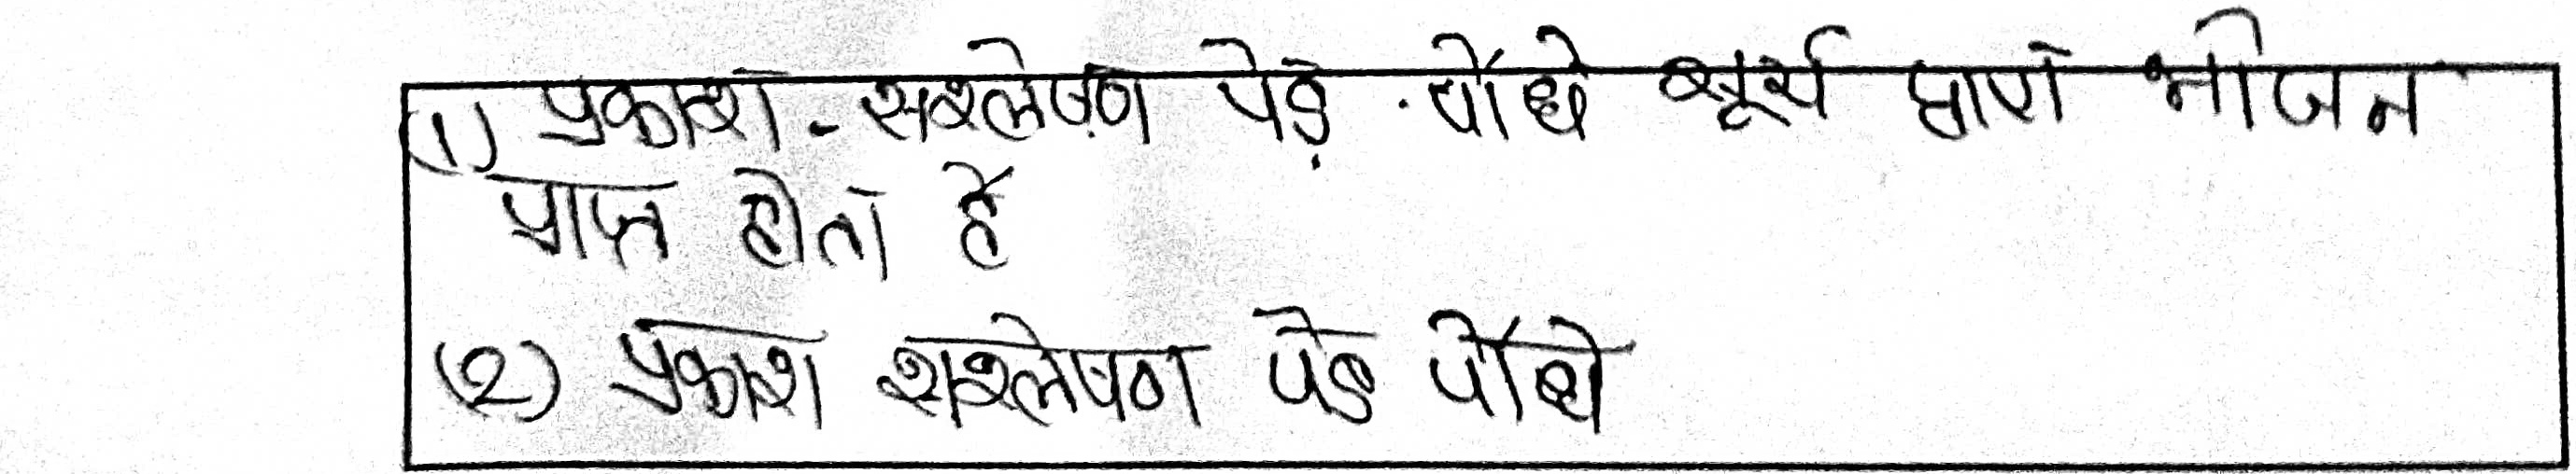 (1) प्रकाश - सश्लेषण पेड़ . पौधे सूर्य द्वारा भोजन
प्राप्त होता है
(2) प्रकाश शश्लेषण पेड पौधे